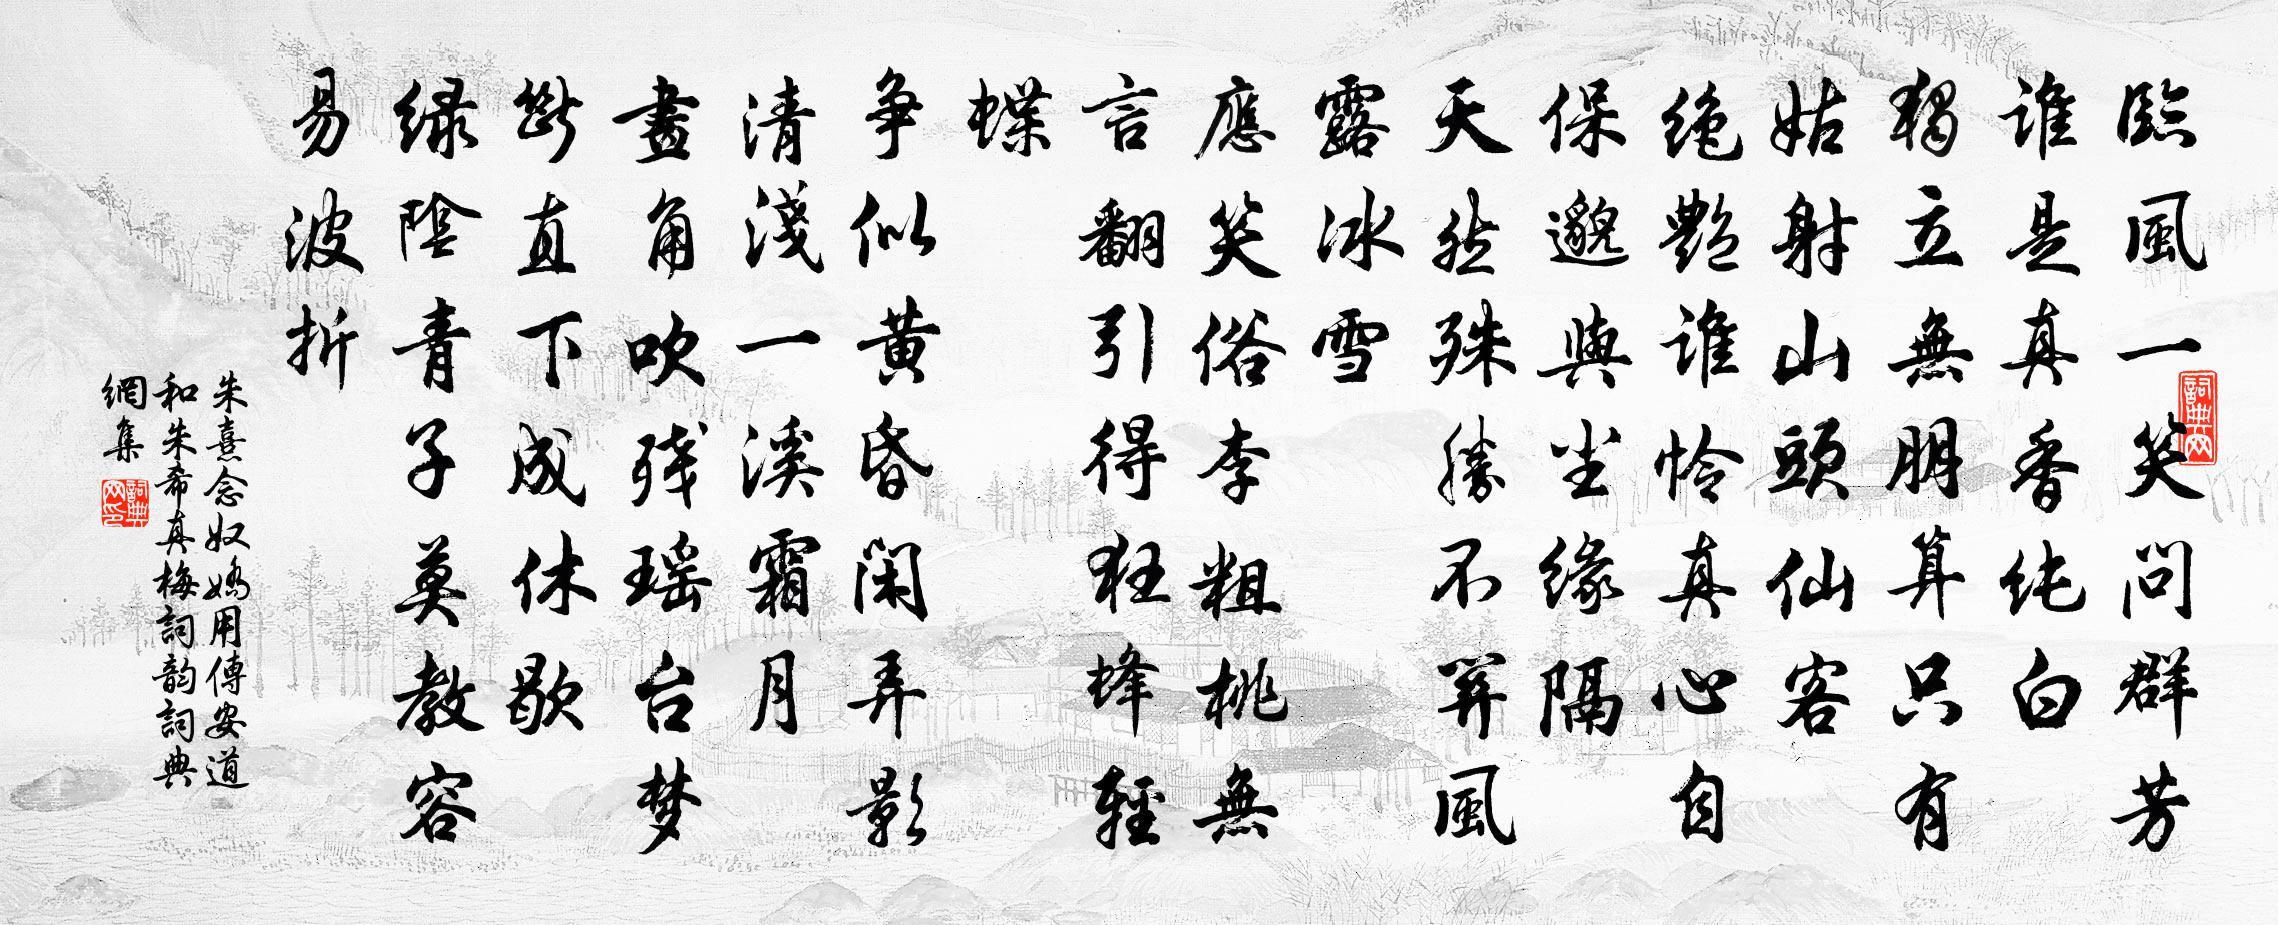 臨風一笑問群芳
誰是真香純白
獨立無朋算只有
姑射山頭仙客
絕艷誰憐真心自
保邈與尘緣隔
天然殊勝不關風
露冰雪
應笑俗李粗桃無
言翻引得狂蜂輕
蝶
爭似黄昏閑弄影
清淺一溪霜月
畫角吹残瑶台梦
斷直下成休歇
緑陰青子莫教容
易波折
朱熹念奴嬌用傳安道
和朱希真梅詞韵詞典
網集
詞典网
詞典网印